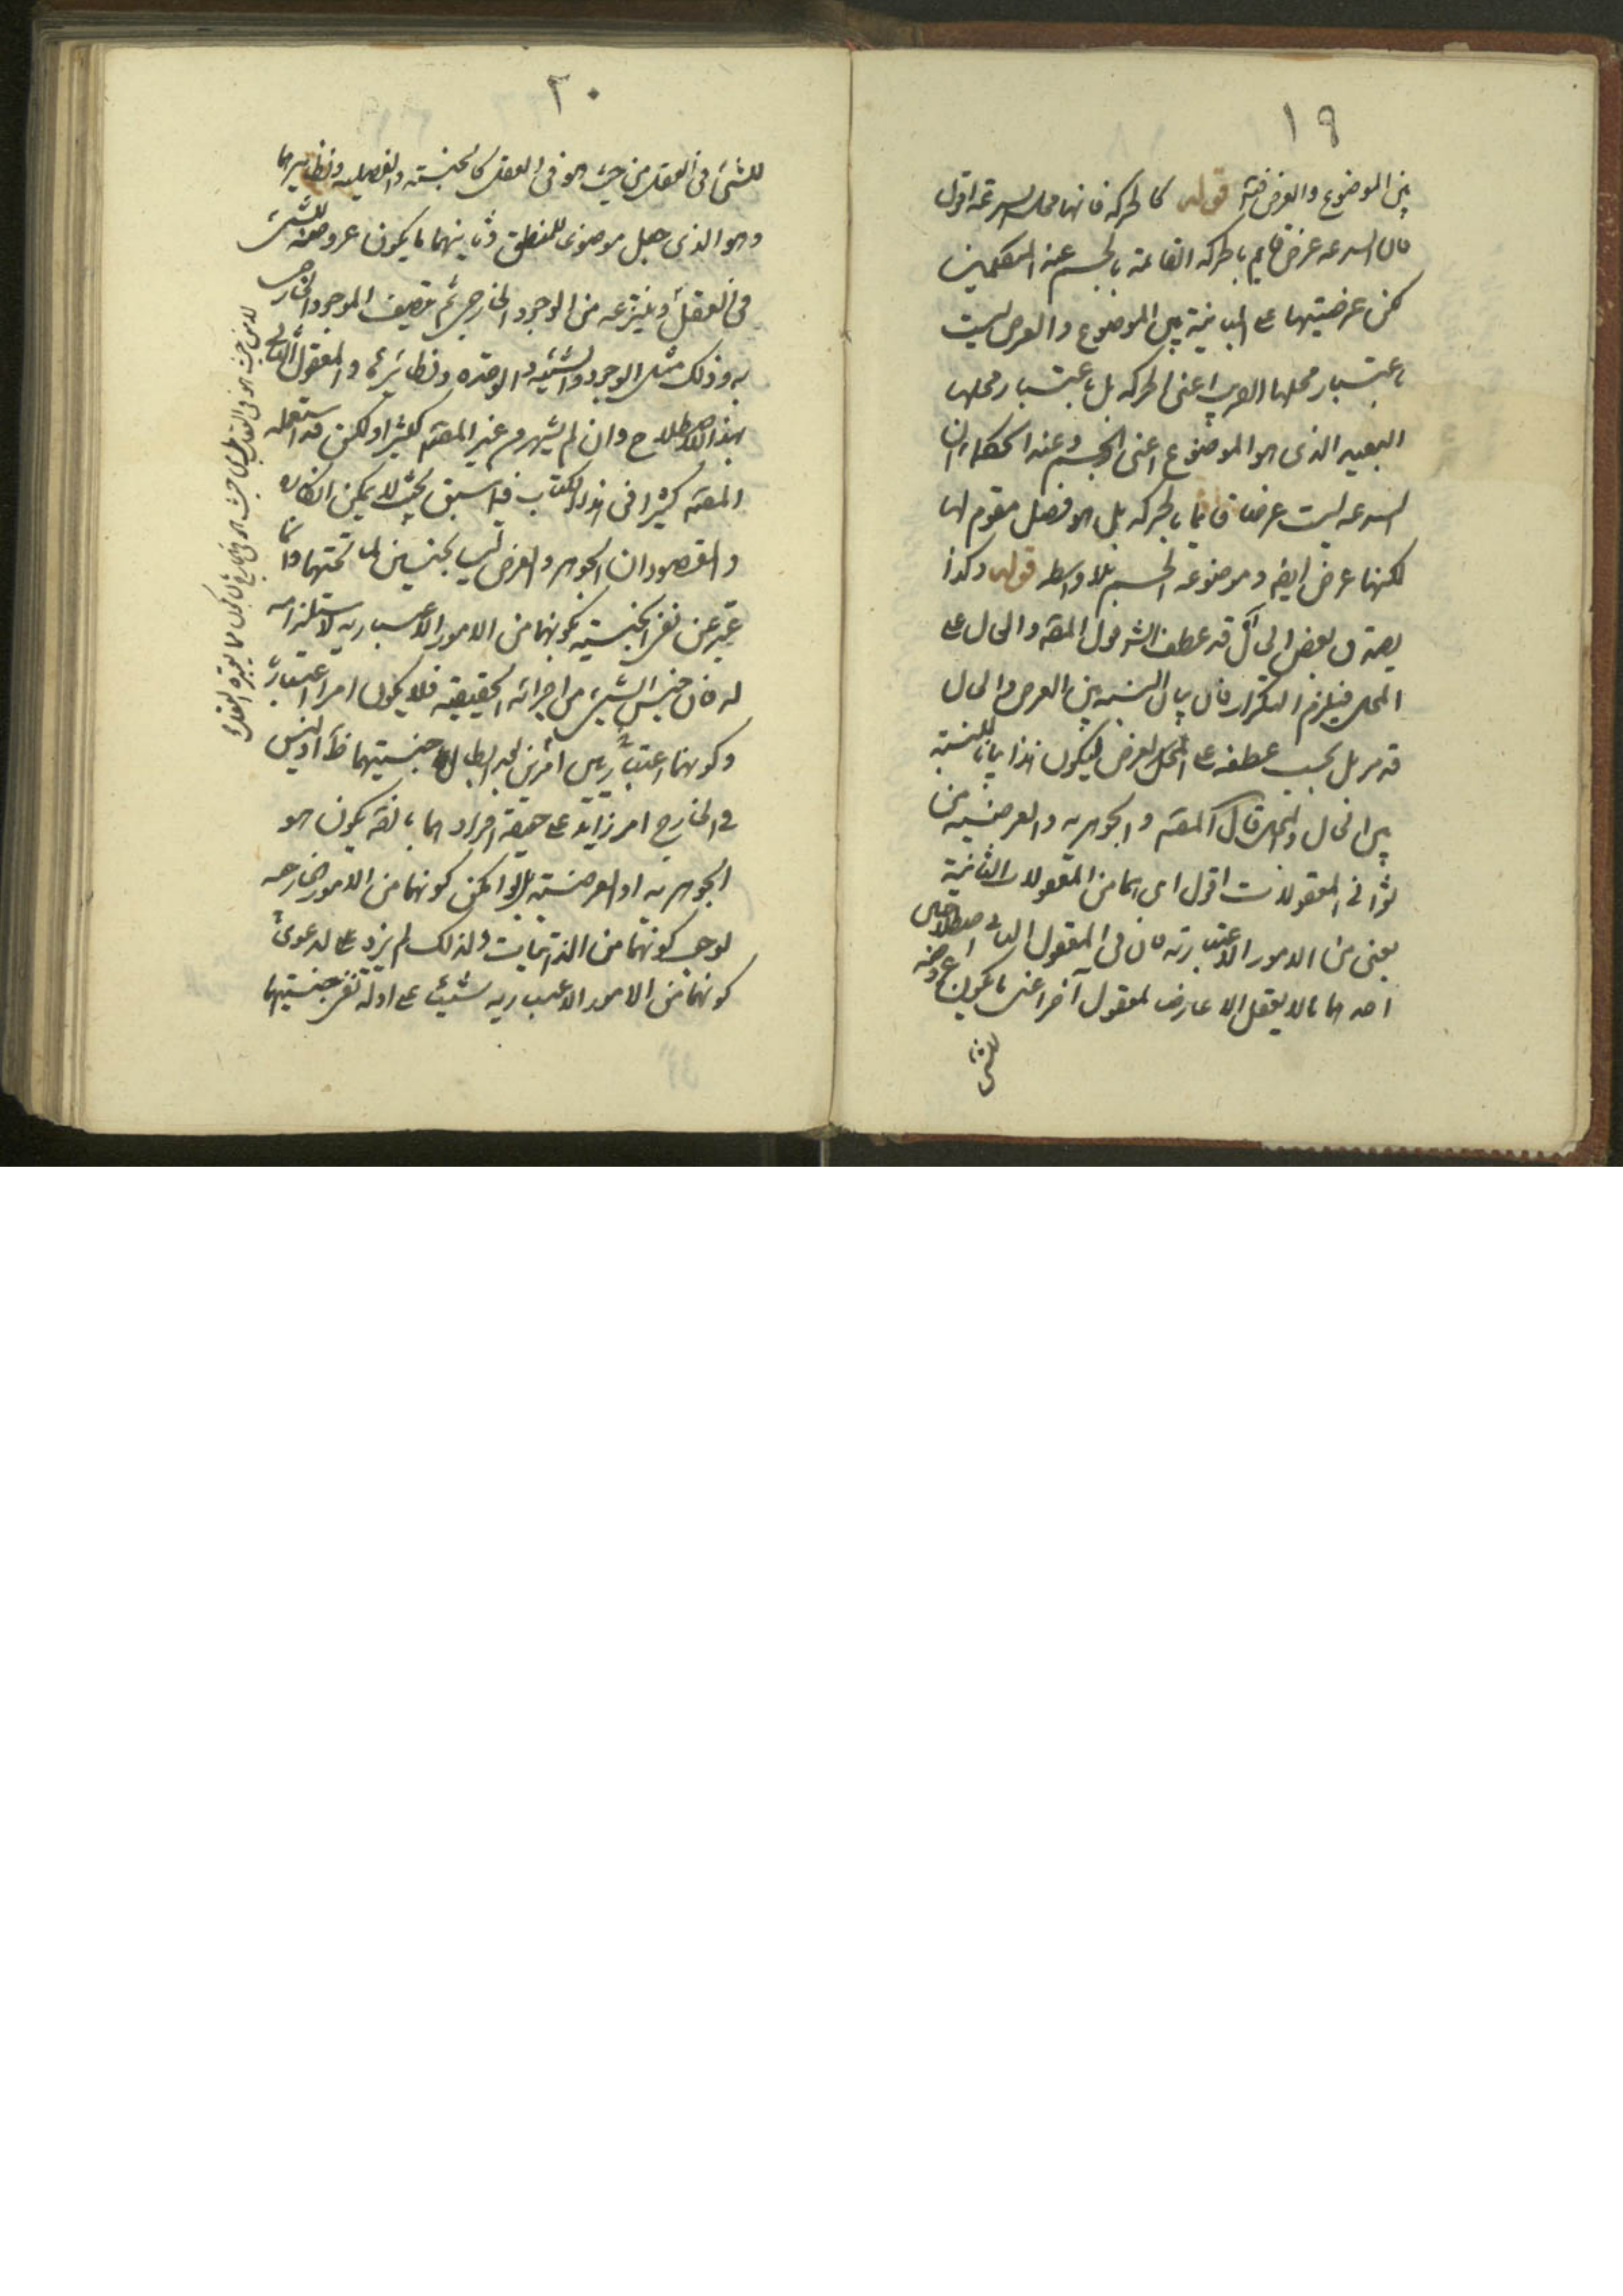 ١٩
بين الموضوع والعرض قوله كالحركة فانها محل السرعة اقول
فان السرعه عرض قايم بالحركه القائمة بالجسم عند المتكلمين
لكن عرضيتها على المباينة بين الموضوع والعرض ليست
باعتبار محلها القريب اعنى الحركه بل باعتبار محلها
البعيد الذى هو الموضوع اعنى الجسم وعند الحكماء ان
السرعه ليست عرضا قائما بالحركه بل هو فصل مقوم لها
لكنها عرض ايضا وموضوعه الجسم بلا واسطه قوله وكذا
يصدق بعض الحال قد عطف الش قول المصه والحال على
المحل فيلزم التكرار فان بيان النسبه بين العرض والحال
قد مر بل يجب عطفه على المحل العرض ليكون هذا بيانا للنسبة
بين الحال والمحل قال المصه والجوهريه والعرضيه من
ثوانى المعقولات اقول اى هما من المعقولات الثانية
يعنى من الامور الاعتباريه فان فى المعقول الثانى اصطلاحين
احدهما ما لا يعقل الا عارضا لمعقول آخر اعنى ما يكون عروضه
للشئ
٢٠
للشئ فى العقل من حيث هو فى العقل كالجنسيته والفصليه ونظايرهما
وهو الذى جعل موضوع للمنطق وثانيهما ما يكون عروضه للشئ
فى العقل وينتزعه من الوجود الخارجى ثم تصيف الموجود الخارجى
به وذلك مثل الوجود والشيئيه والوحده ونظايرها والمعقول الثانى
بهذا الاصطلاح وان لم يشتهر من غير المصه كثيرا ولكن قد استعمله
المصه كثيرا فى هذا الكتاب فيما سبق بحيث لا يمكن انكاره
والمقصود ان الجوهر والعرض ليسا بجنسين لما تحتهما وانما
عبر عن نفى الجنسيته بكونهما من الامور الاعتباريه لاستلزامه
له فان جنس الشئ من اجزائه الحقيقيه فلا يكون امرا اعتباريا
وكونهما اعتباريين امر بين لابطال جنسيتهما ظ اذ ليس
فى الخارج امر زايد على حقيقة افرادهما بالفه يكون هو
الجوهريه او العرضيته بل لو امكن كونهما من الامور الخارجيه
لوجب كونهما من الذاتيات ولذلك لم يزد على الدعوى
كونهما من الامور الاعتباريه شيئا على ادلة نفى جنسيتهما